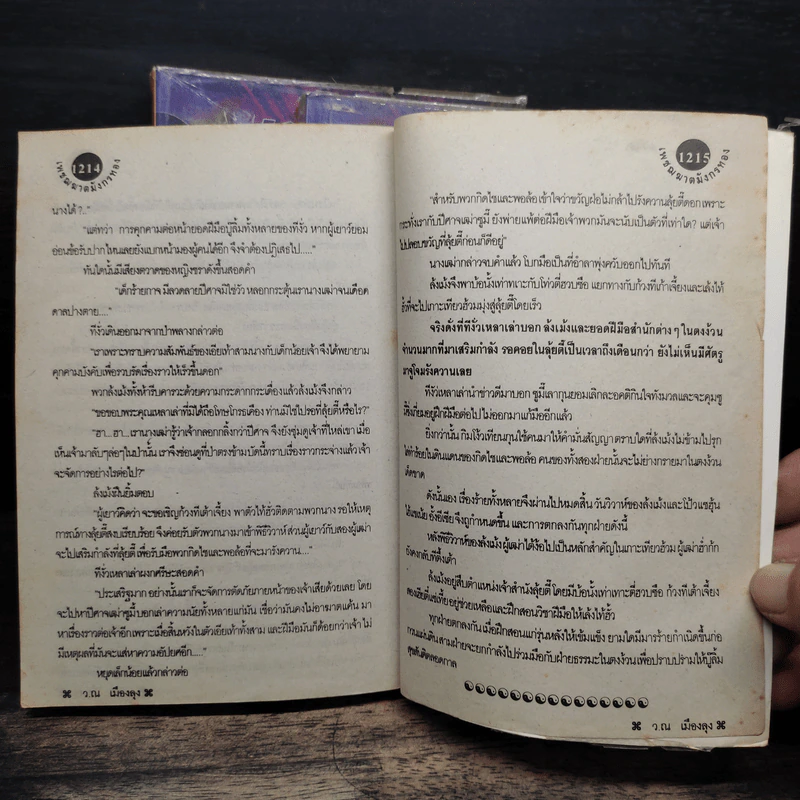 1214
เพชฌฆาตมังกรทอง
นางได้ ?.."
"แต่ทว่า การคุกคามต่อหน้ายอดฝีมือบู๊ลิ้มทั้งหลายของที่งั่ว หากผู้เยาว์ยอม
อ่อนข้อรับปากไหนเลยยังแบกหน้ามองผู้คนได้อีก จึงจำต้องปฏิเสธไป....."
ทันใดนั้นมีเสียงตวาดของหญิงชราดังขึ้นสอดคำ
"เด็กร้ายกาจ มีลวดลายปีศาจมิใช่ชั่ว หลอกกระตุ้นเรานางเฒ่าจนเดือด
ดาลปางตาย...."
ที่งั่วเดินออกมาจากป่าพลางกล่าวต่อ
"เราเพราะทราบความสัมพันธ์ของเอียเท้าสามนางกับเด็กน้อยเจ้า จึงได้พยายาม
คุกคามบังคับเพื่อรวบรัดเรื่องราวให้เร็วขึ้นดอก"
พวกลังเม้งทั้งห้ารีบคารวะด้วยความกระดากกระเดื่องแล้วลังเม้งจึงกล่าว
"ขอขอบพระคุณเหลาเล่าที่มิได้ถือโทษโกรธเคือง ท่านมิใช่ไปรอที่ลุ้ยตี้หรือไร?"
"ฮา...ฮา...เรานางเฒ่ารู้ว่าเจ้ากลอกกลิ้งกว่าปีศาจ จึงยังซุ่มดูเจ้าที่ไหล่เขา เมื่อ
เห็นเจ้ามาลับๆล่อๆในป่านั้น เราจึงซ่อนดูที่ป่าตรงข้าม บัดนี้ทราบเรื่องราวกระจ่างแล้ว เจ้า
จะจัดการอย่างไรต่อไป?"
ลังเม้งฝืนยิ้มตอบ
"ผู้เยาว์คิดว่า จะขอเชิญก้วงที่เต้าเจี้ยง พาตัวไห้ฮัวติดตามพวกนาง รอให้เหตุ
การณ์ทางลุ้ยตี้สงบเรียบร้อย จึงค่อยรับตัวพวกนางมาเข้าพิธีวิวาห์ ส่วนผู้เยาว์กับสองผู้เฒ่า
จะไปเสริมกำลังที่ลุ้ยตี้ เพื่อรับมือพวกกิดไซและพอล้อที่จะมารังควาน...."
ที่งั่วเหลาเล่าผงกศรีษะสอดคำ
"ประเสริฐมาก อย่างนั้นเราก็จะจัดการตัดภัยภายหน้าของเจ้าเสียด้วยเลย โดย
จะไปหาปีศาจเฒ่าซูมี้บอกเล่าความนัยทั้งหลายแก่มัน เชื่อว่ามันคงไม่อาฆาตแค้น มา
หาเรื่องราวต่อเจ้าอีก เพราะเมื่อสิ้นหวังในตัวเอียเท้าทั้งสาม และฝีมือมันก็ด้อยกว่าเจ้า ไม่
มีเหตุผลที่มันจะแส่หาความอัปยศอีก....."
หยุดเล็กน้อยแล้วกล่าวต่อ
⌘ ว.ณ เมืองลุง ⌘
1215
เพชฌฆาตมังกรทอง
"สำหรับพวกกิดไซและพอล้อ เข้าใจว่าขวัญฝ่อไม่กล้าไปรังควานลุ้ยตี้ดอก เพราะ
กระทั่งเรากับปีศาจเฒ่าซูมี้ ยังพ่ายแพ้ต่อฝีมือเจ้า พวกมันจะนับเป็นตัวที่เท่าใด? แต่เจ้า
ไปปลอบขวัญที่ลุ้ยตี้ก่อนก็ดีอยู่"
นางเฒ่ากล่าวจบคำแล้ว โบกมือเป็นที่อำลาพุ่งควับออกไปทันที
ลังเม้งจึงพาป้อนั้งเท่าทเาะกับโท่วตี้ฮวบซือ แยกทางกับก้วงที่เต้าเจี้ยงและเล้งไห้
ฮั้วที่จะไปเกาะเทียวฮ้วมมุ่งสู่ลุ้ยตี้โดยเร็ว
จริงดั่งที่ที่งั่วเหลาเล่าบอก ลังเม้งและยอดฝีมือสำนักต่างๆ ในตงง้วน
จำนวนมากที่มาเสริมกำลัง รอคอยในลุ้ยตี้เป็นเวลาถึงเดือนกว่า ยังไม่เห็นมีศัตรู
มาจู่โจมรังควานเลย
ที่งั่วเหลาเล่านำข่าวดีมาบอก ซูมี้เลากุนยอมเลิกละอคติกินใจทั้งมวลและจะคุมซู
ไม่ออกมาแก้มืออีกแล้ว
ยิ่งกว่านั้น กิมโง้วเทียนกุนใช้คนมาให้คำมั่นสัญญา ตราบใดที่ลังเม้งไม่ข้ามไปรุก
ไล่ทำร้ายในดินแดนของกิดไซและพอล้อ คนของทั้งสองฝ่ายนั้นจะไม่ย่างกรายมาในตงง้วน
เด็ดขาด
ดังนั้นเอง เรื่องร้ายทั้งหลายจึงผ่านไปหมดสิ้น วันวิวาห์ของลังเม้งและโป้วแชฮุ้น
จึงถูกกำหนดขึ้น และการตกลงกันทุกฝ่ายดังนี้
หลังพิธีวิวาห์ของลังเม้ง ผู้เฒ่าไต้ง้อไปเป็นหลักสำคัญในเกาะเทียวฮ้วม ผู้เฒ่าฮ่ำกัก
ยังคงกลับที่ตั้งเต้า
ลังเม้งอยู่สืบตำแหน่งเจ้าสำนังลุ้ยตี้ โดยมีป้อนั้งเท่าเาะตี่ฮวบซือ ก้วงทีเต้าเจี้ยง
อยู่ช่วยเหลือและฝึกสอนวิชาฝีมือให้เล้งไห้ฮั้ว
ทุกฝ่ายตกลงกัน เมื่อฝึกสอนแก่รุ่นหลังให้เข้มแข็ง ยามใดมีมารร้ายกำเนิดขึ้นก่อ
กวนแผ่นดิน สามฝ่ายจะยกกำลังไปร่วมมือกับฝ่ายธรรมะในตงง้วน เพื่อปราบปรามให้บู๊ลิ้ม
สุขสันติตลอดกาล
⌘ ว.ณ เมืองลุง ⌘